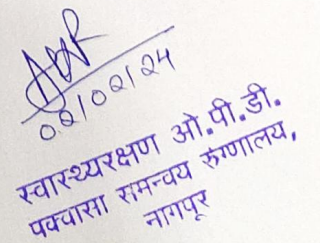 02/02/24
स्वास्थ्यरक्षण ओ.पी.डी.
पक्वासा समन्वय रुग्णालय,
नागपूर